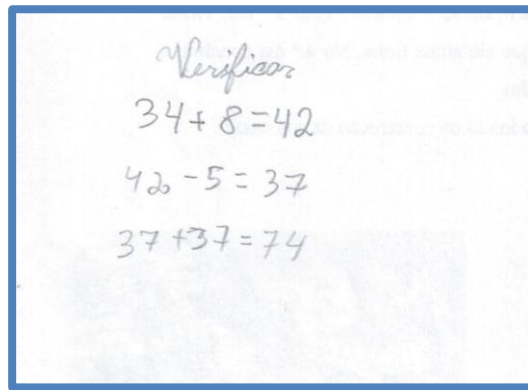 Verificar
34 + 8 = 42
42 - 5 = 37
37 + 37 = 74